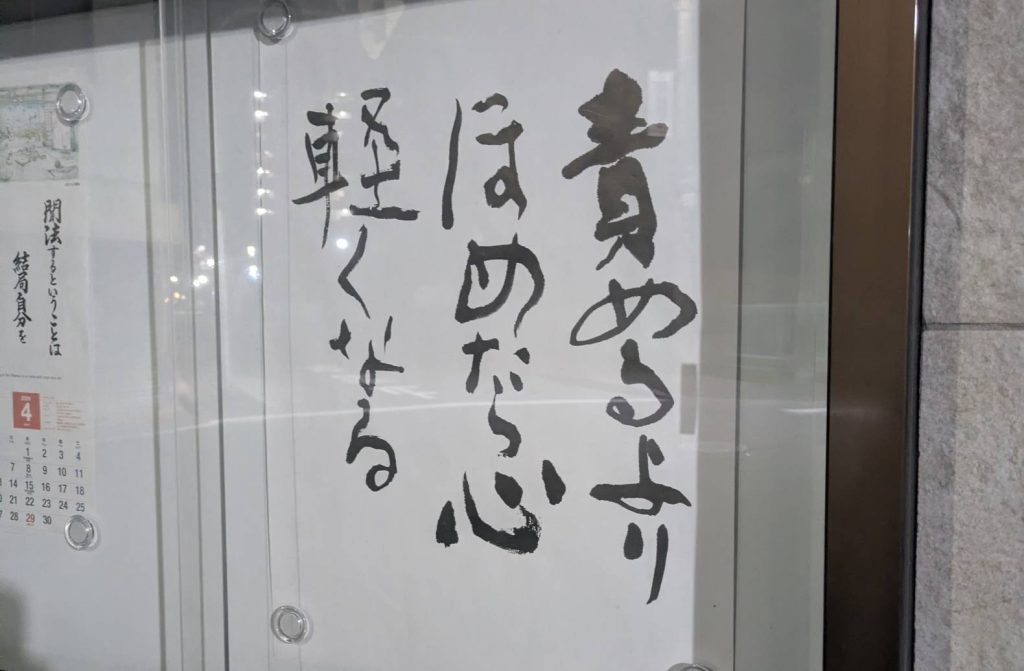 責めるより
ほめたら心
軽くなる
聞法するということは
結局自分を
4
1 2 3 4
7 8 9 10 11
14 15 16 17 18
21 22 23 24 25
28 29 30